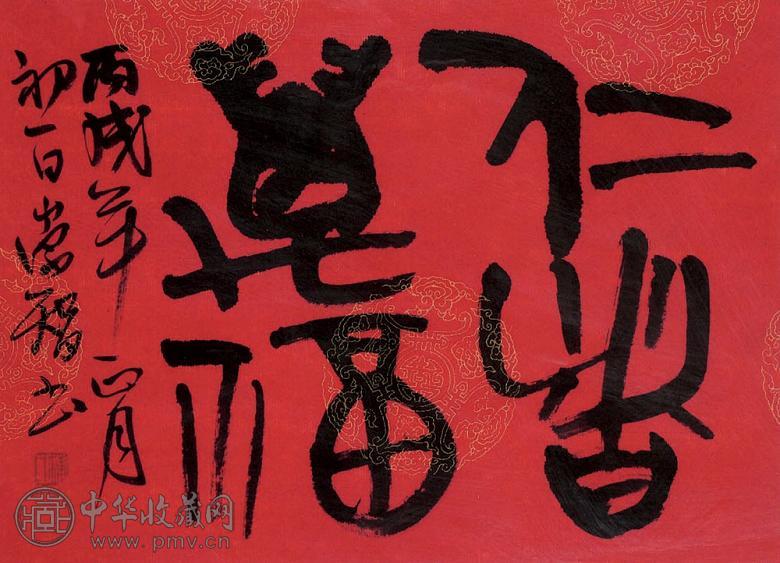 仁者
萬福
丙戌年 正月
初一日 智书
中华收藏网
www.pmv.cn